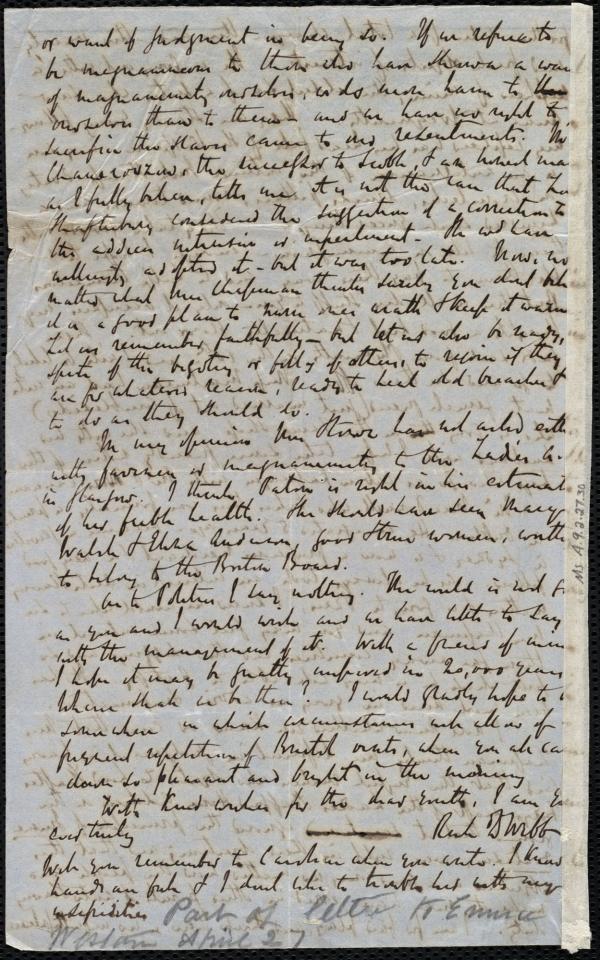 or want of judgment in being so. If we refuse to
be magnanimous to those who have shown a want
of magnanimity ourselves, we do more harm to
ourselves than to them - and we have no right to
sacrifice the slaves cause to our resentments. Mr
Chamerovzow, the successor to Scoble, & an honest man
as I fully believe, tells me it is not the case that Lord
Shaftesbury considered the suggestion of a correction to
the address intrusive or impertinent. He would have
willingly adopted it - but it was too late. Now, no
matter what Mrs Chapman thinks surely you don't believe
it is a good plan to nurse ones wrath & keep it warm.
Let us remember faithfully - but let us also be ready, in
spite of the bigotry or folly of others, to rejoice if they
are for whatever reason, ready to heal old breaches &
to do as they should do.
In my opinion Mrs Stowe has not acted either
with fairness or magnanimity to the Ladies
in Glasgow. I think Paton is right in his estimate
of her feeble health. She should have seen Mary
Walsh & Eliza Anderson, good & true women, worthy
to belong to the Boston Board.
As to Politics I say nothing. The world is not
as you and I would wish and we have little to say
with the management of it. With a friend of mine
I hope it may be greatly improved in 20,000 years
Where shall we be then? I would gladly hope to be
somewhere in which circumstances will allow of
frequent repetition of Bristol visits, when you all came
down so pleasant and bright in the morning
With kind wishes for the dear youth, I am
ever truly Rich D Webb
Will you remember to Caroline when you write. I know
hands are full & I don't like to trouble her with my
insipidities
Part of letter to Emma
Weston April 27
Ms A.9.2.27.30